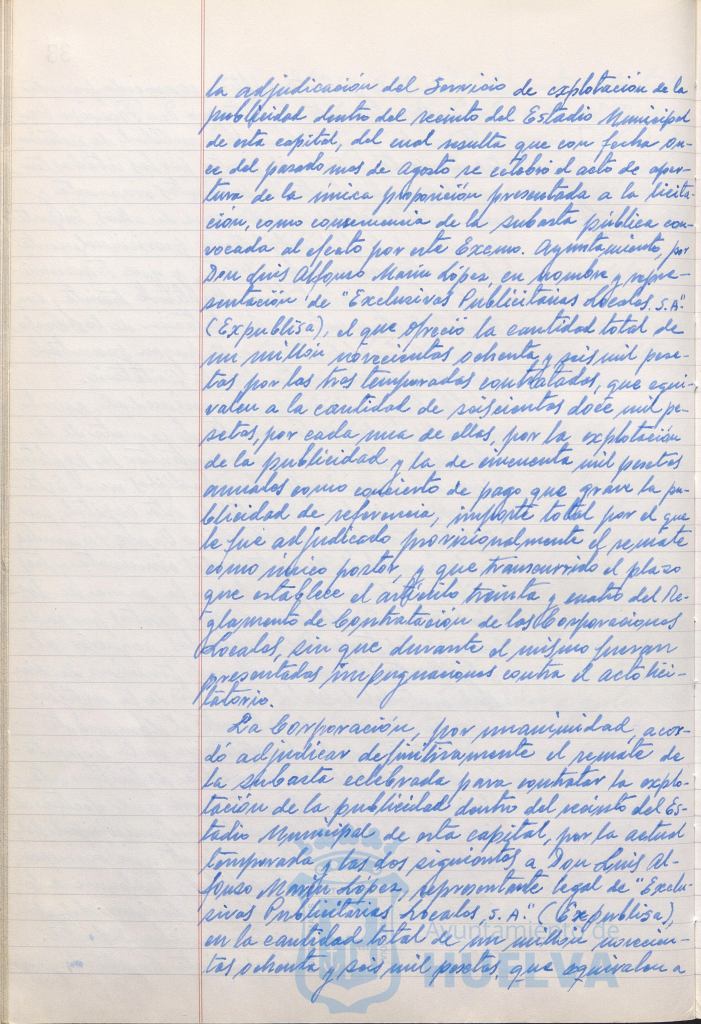 la adjudicación del Servicio de explotación de la
publicidad dentro del recinto del Estadio Municipal
de esta capital, del cual resulta que con fecha on-
ce del pasado mes de Agosto se celebró el acto de aper-
tura de la única proposición presentada a la licita-
ción, como consecuencia de la subasta pública con-
vocada al efecto por este Excmo. Ayuntamiento, por
Don Luis Alfonso Marin López, en nombre y repre-
sentación de "Exclusivas Publicitarias Locales, S.A."
(Expublisa), el que ofreció la cantidad total de
un millón novecientas ochenta y seis mil pese-
tas por las tres temporadas contratadas, que equi-
valen a la cantidad de seiscientas doce mil pe-
setas, por cada una de ellas, por la explotación
de la publicidad y la de cincuenta mil pesetas
anuales como concierto de pago que grava la pu-
blicidad de referencia, importe total por el que
le fue adjudicado provisionalmente el remate
como único postor, y que transcurrido el plazo
que establece el artículo treinta y cuatro del Re-
glamento de Contratación de las Corporaciones
Locales, sin que durante el mismo fueran
presentadas impugnaciones contra el acto lici-
tatorio.
La Corporación, por unanimidad, acor-
dó adjudicar definitivamente el remate de
la subasta celebrada para contratar la explo-
tación de la publicidad dentro del recinto del Es-
tadio Municipal de esta capital, por la actual
temporada y las dos siguientes, a Don Luis Al-
fonso Marin López, representante legal de "Exclu-
sivas Publicitarias Locales, S.A." (Expublisa),
en la cantidad total de un millón novecien-
tas ochenta y seis mil pesetas, que equivalen a
Ayuntamiento de
HUELVA